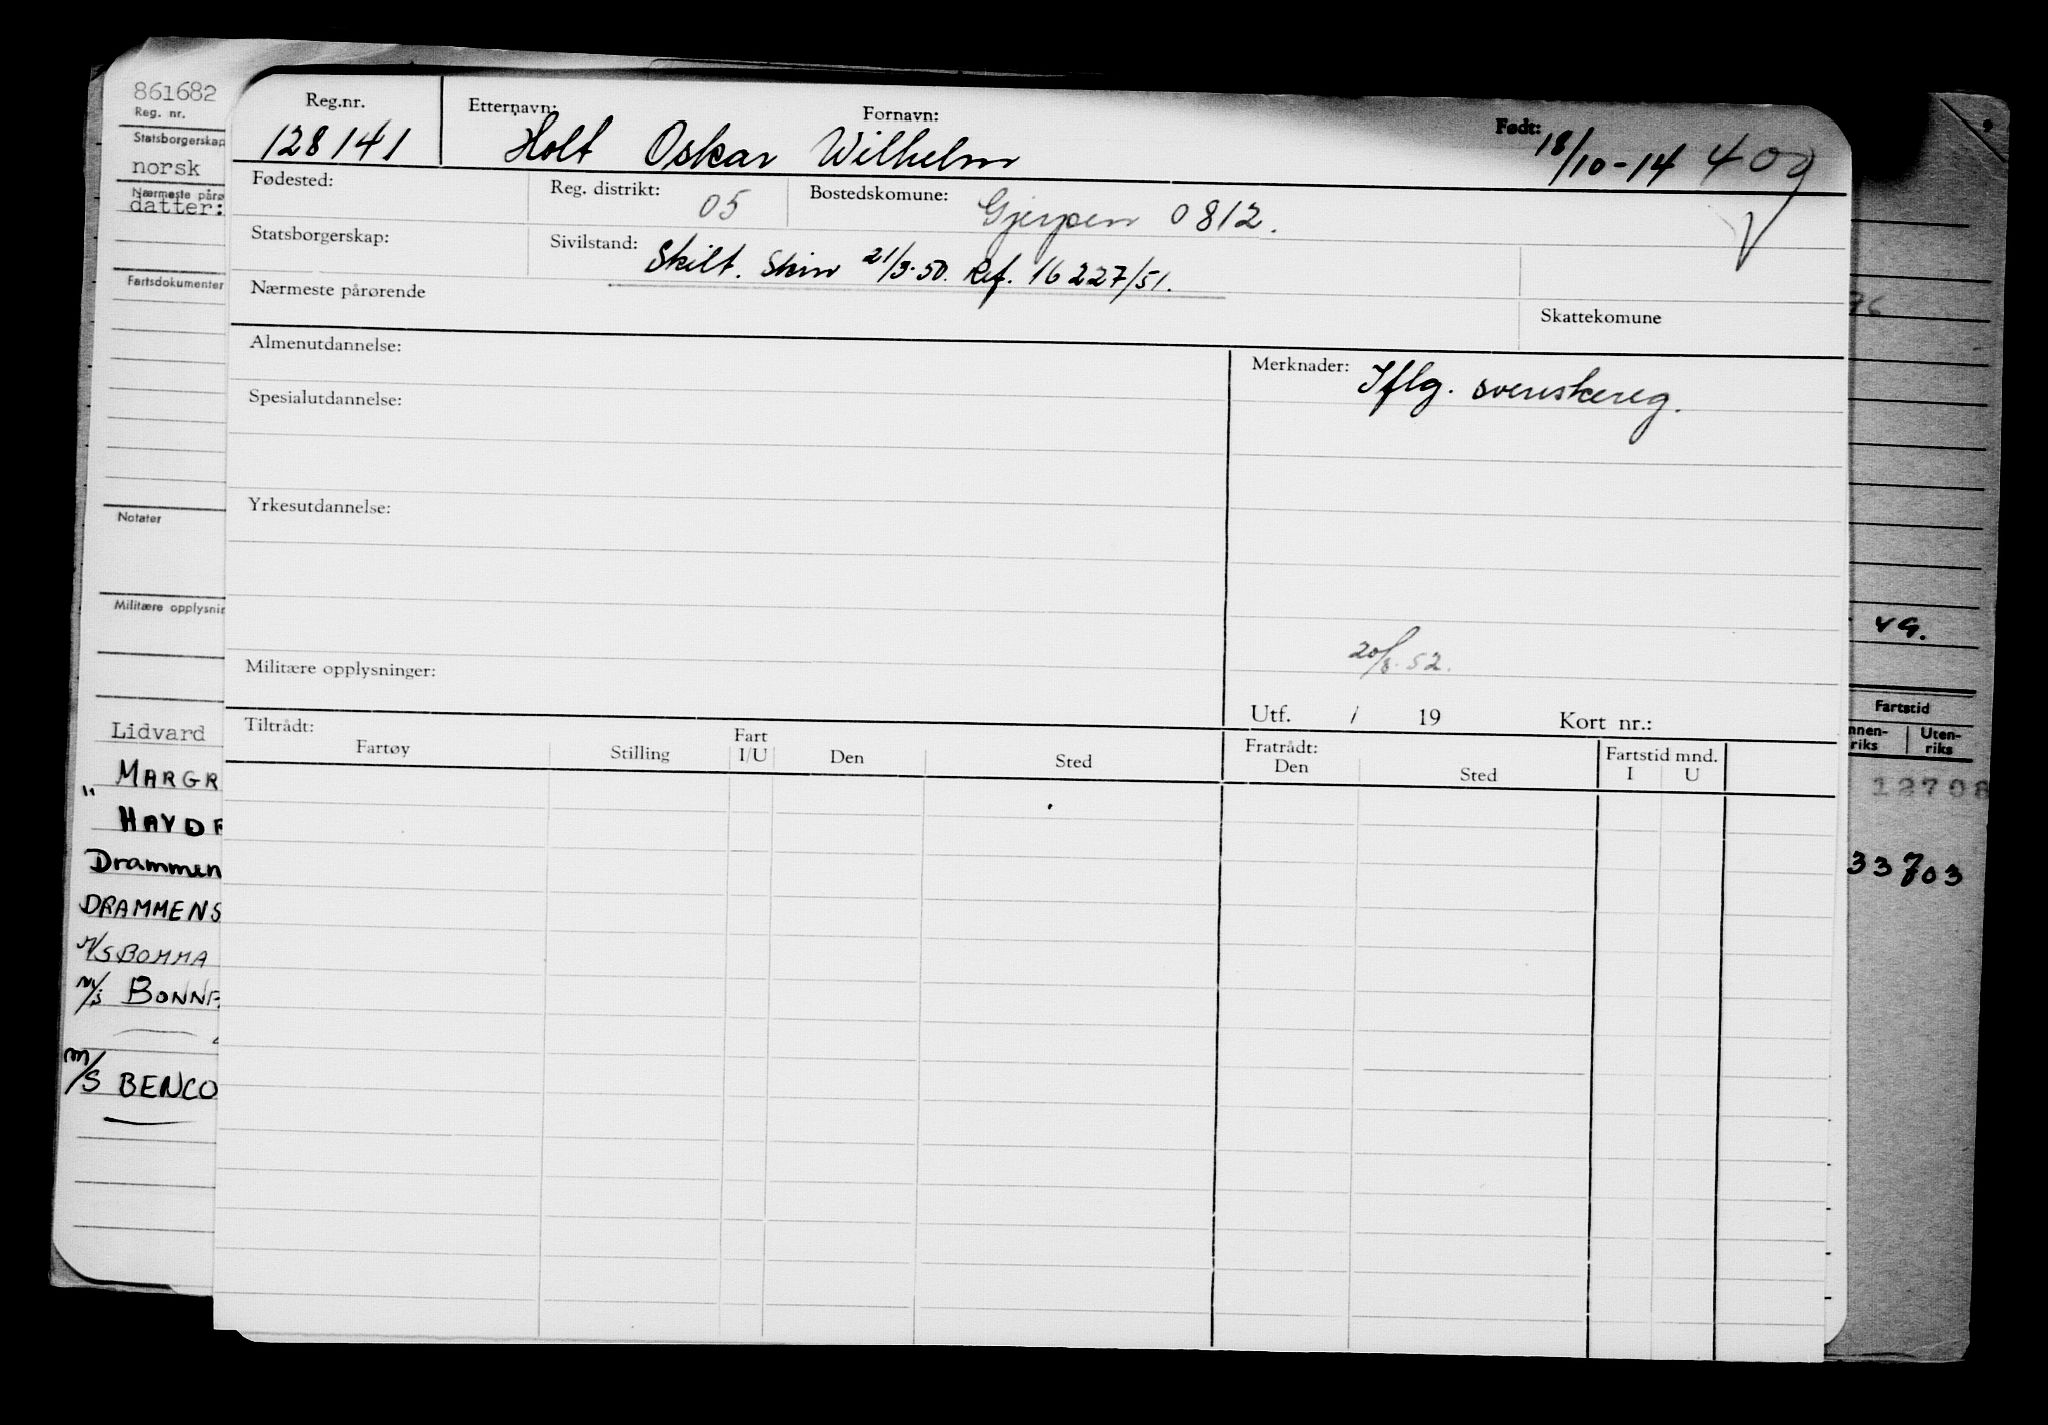 861682
Reg. nr.
Statsborgerskap
norsk
Nærmeste pårø
datter:
Fartsdokumenter
Notater
Militære opplysnin
Lidvard
" MARGR
HAVDR
Drammen
DRAMMENS
M/S BOMMA
M/S BONNE
M/S BENCO
Reg.nr. Etternavn: Fornavn: Født:
128141 Holt Oskar Wilhelm 18/10-14 409
Fødested: Reg. distrikt: 05 Bostedskomune: Gjerpen 0812.
Statsborgerskap: Sivilstand: Skilt. Skien 21/3-50. Ref. 16227/51.
Nærmeste pårørende Skattekomune
Almenutdannelse: Merknader: Iflg. svenskereg.
Spesialutdannelse:
Yrkesutdannelse:
20/8.52.
Militære opplysninger:
Utf. / 19 Kort nr.:
Tiltrådt: Fratrådt:
Fartøy Stilling Fart I/U Den Sted Den Sted Fartstid mnd. I U
76
49.
Fartstid
nnen-riks Uten-riks
12708
33703